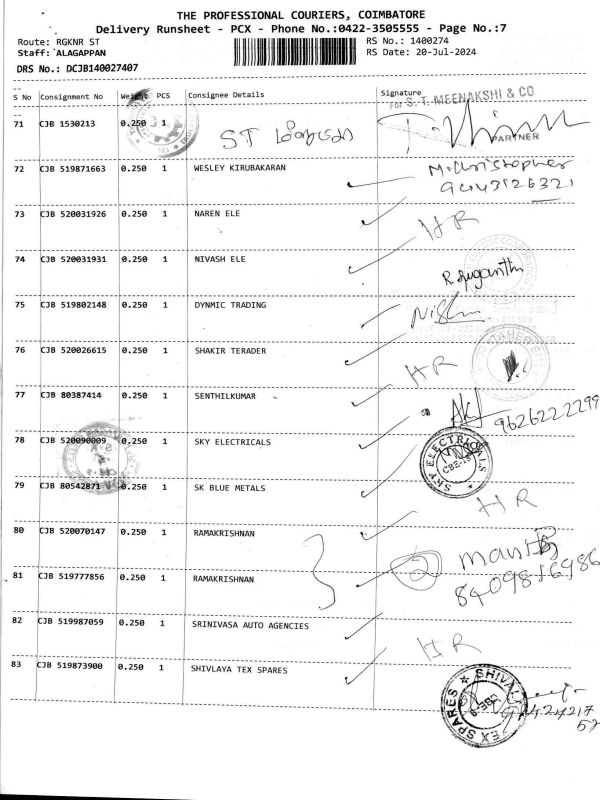 THE PROFESSIONAL COURIERS, COIMBATORE
Delivery Runsheet - PCX - Phone No.:0422-3505555 - Page No.:7
Route: RGKNR ST RS No.: 1400274
Staff: ALAGAPPAN RS Date: 20-Jul-2024
DRS No.: DCJB140027407
S No Consignment No Weight PCS Consignee Details Signature
For S. T. MEENAKSHI & CO
71 CJB 1530213 0.250 1 ST
PARTNER
72 CJB 519871663 0.250 1 WESLEY KIRUBAKARAN M.Christopher
9443126321
73 CJB 520031926 0.250 1 NAREN ELE HR
74 CJB 520031931 0.250 1 NIVASH ELE
75 CJB 519802148 0.250 1 DYNMIC TRADING
76 CJB 520026615 0.250 1 SHAKIR TERADER HR
77 CJB 80387414 0.250 1 SENTHILKUMAR 9626222299
78 CJB 520090009 0.250 1 SKY ELECTRICALS
SKY ELECTRICALS
CBE-18
79 CJB 80542871 0.250 1 SK BLUE METALS HR
80 CJB 520070147 0.250 1 RAMAKRISHNAN
81 CJB 519777856 0.250 1 RAMAKRISHNAN
8409816986
82 CJB 519987059 0.250 1 SRINIVASA AUTO AGENCIES HR
83 CJB 519873900 0.250 1 SHIVLAYA TEX SPARES
TEX SPARES